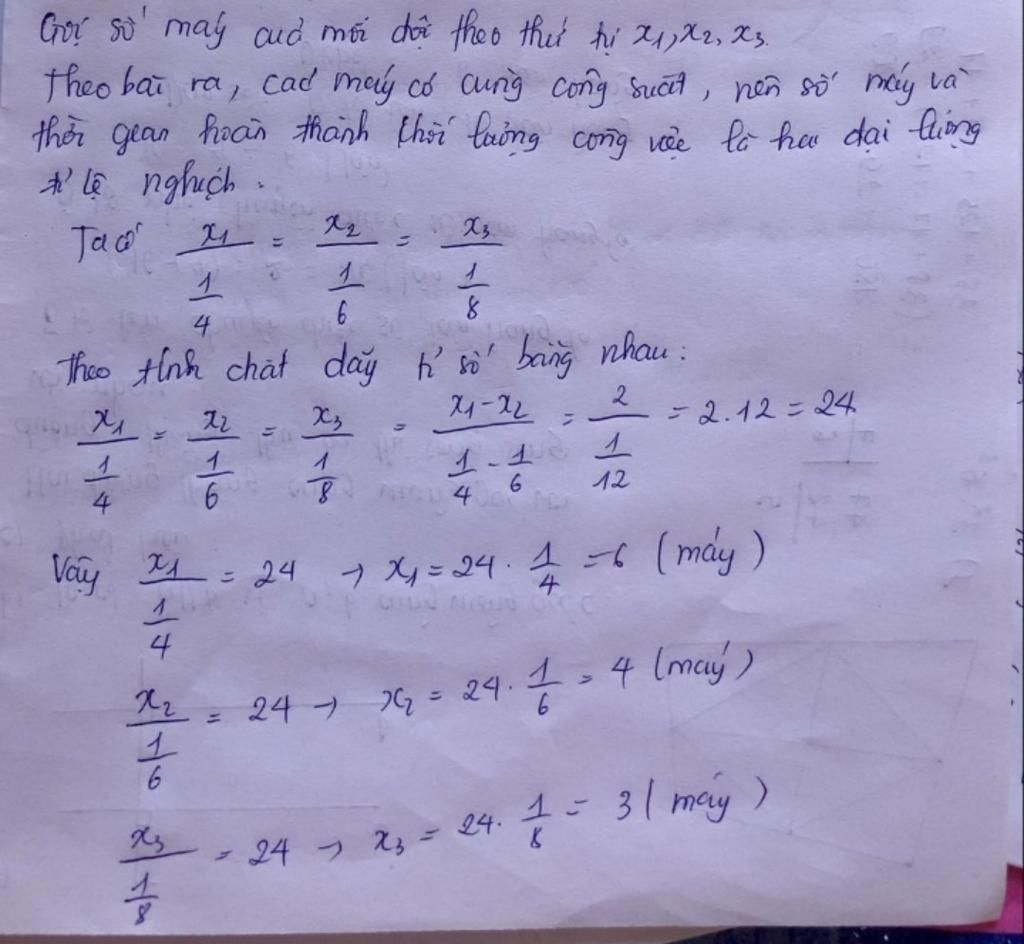 Gọi số máy của mỗi đội theo thứ tự x1, x2, x3.
Theo bài ra, các máy có cùng công suất, nên số máy và
thời gian hoàn thành khối lượng công việc là hai đại lượng
tỉ lệ nghịch.
Ta có x1/(1/4) = x2/(1/6) = x3/(1/8)
Theo tính chất dãy tỉ số bằng nhau:
x1/(1/4) = x2/(1/6) = x3/(1/8) = (x1-x2)/(1/4-1/6) = 2/(1/12) = 2.12 = 24
Vậy x1/(1/4) = 24 → x1 = 24. 1/4 = 6 (máy)
x2/(1/6) = 24 → x2 = 24. 1/6 = 4 (máy)
x3/(1/8) = 24 → x3 = 24. 1/8 = 3 (máy)